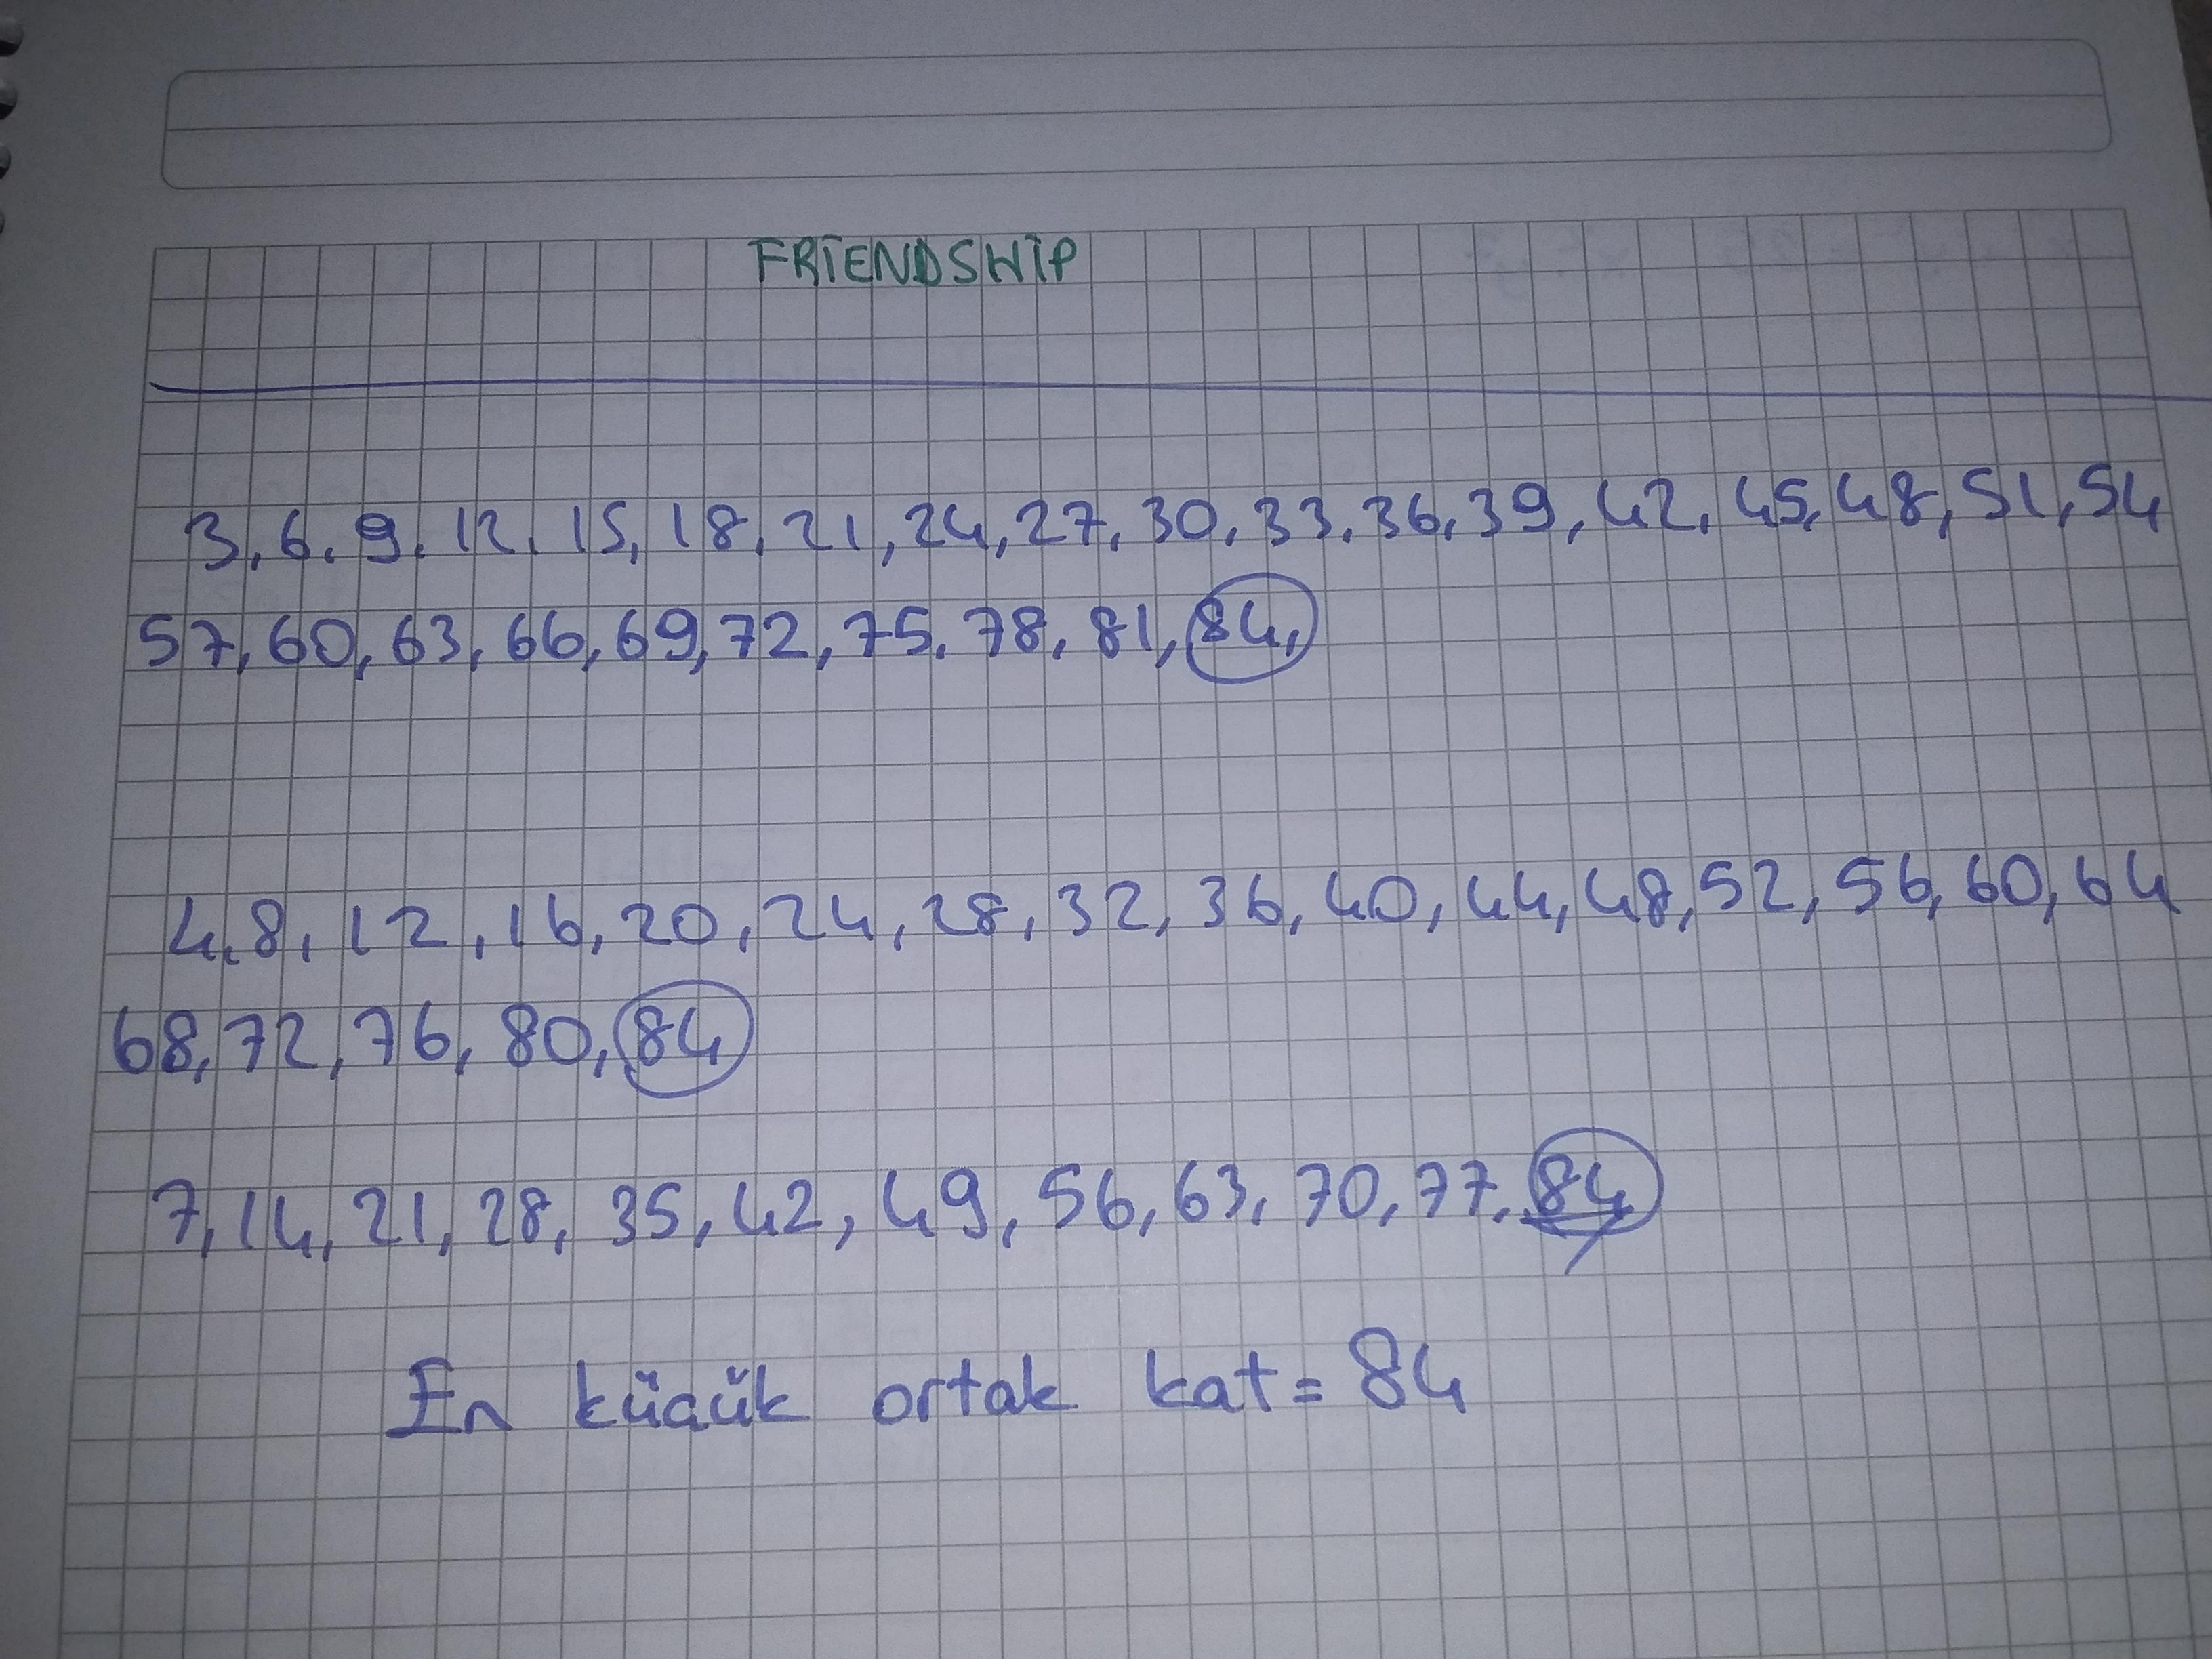 FRİENDSHİP
3, 6, 9, 12, 15, 18, 21, 24, 27, 30, 33, 36, 39, 42, 45, 48, 51, 54
57, 60, 63, 66, 69, 72, 75, 78, 81, 84,
4, 8, 12, 16, 20, 24, 28, 32, 36, 40, 44, 48, 52, 56, 60, 64
68, 72, 76, 80, 84
7, 14, 21, 28, 35, 42, 49, 56, 63, 70, 77, 84
En küçük ortak kat = 84